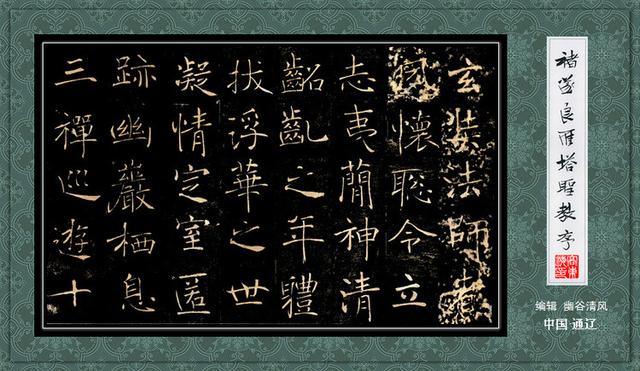 玄奘法師者
懷聰令立
志夷簡神清
齠齔之年體
拔浮華之世
凝情定室匿
跡幽巖栖息
三禪巡遊十
褚遂良雁塔聖教序
编辑 幽谷清风
中国·通辽